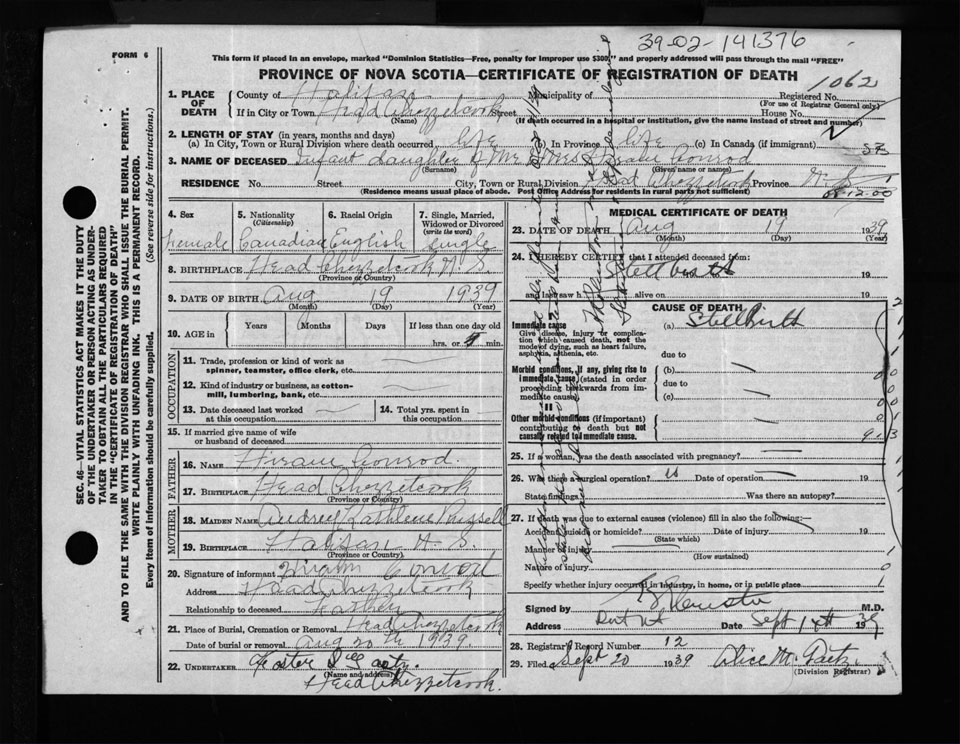 39-02-141376
FORM 6
This form if placed in an envelope, marked "Dominion Statistics—Free, penalty for improper use $300," and properly addressed will pass through the mail "FREE"
PROVINCE OF NOVA SCOTIA—CERTIFICATE OF REGISTRATION OF DEATH
1062
1. PLACE OF DEATH
County of Halifax Municipality of Registered No.
(For use of Registrar General only)
If in City or Town Head Chezzetcook Street House No.
(Name) (If death occurred in a hospital or institution, give the name instead of street and number)
2. LENGTH OF STAY (in years, months and days)
(a) In City, Town or Rural Division where death occurred life (b) In Province life (c) In Canada (if immigrant)
SB
3. NAME OF DECEASED Infant daughter of Mr & Mrs Hiram Conrod
(Surname) (Given name or names)
RESIDENCE No. Street City, Town or Rural Division Head Chezzetcook Province N.S.
(Residence means usual place of abode. Post Office Address for residents in rural parts not sufficient)
4. Sex 5. Nationality (Citizenship) 6. Racial Origin 7. Single, Married, Widowed or Divorced (write the word)
Female Canadian English Single
8. BIRTHPLACE Head Chezzetcook N.S.
(Province or Country)
9. DATE OF BIRTH Aug 19 1939
(Month) (Day) (Year)
10. AGE in Years Months Days If less than one day old
hrs. or min.
OCCUPATION
11. Trade, profession or kind of work as spinner, teamster, office clerk, etc.
12. Kind of industry or business, as cotton-mill, lumbering, bank, etc.
13. Date deceased last worked at this occupation 14. Total yrs. spent in this occupation
15. If married give name of wife or husband of deceased
FATHER
16. NAME Hiram Conrod
17. BIRTHPLACE Head Chezzetcook
(Province or Country)
MOTHER
18. MAIDEN NAME Audrey Kathlene Russell
19. BIRTHPLACE Halifax N.S.
(Province or Country)
20. Signature of informant Hiram Conrod
Address Head Chezzetcook
Relationship to deceased Father
21. Place of Burial, Cremation or Removal Head Chezzetcook
Date of burial or removal Aug 20th 1939
22. UNDERTAKER
(Name and address)
Head Chezzetcook.
MEDICAL CERTIFICATE OF DEATH
23. DATE OF DEATH Aug 19 1939
(Month) (Day) (Year)
24. I HEREBY CERTIFY that I attended deceased from
Stillbirth 19 to 19
and last saw h alive on 19
CAUSE OF DEATH
Immediate cause (a) Stillbirth
Give disease, injury or complication which caused death, not the mode of dying, such as heart failure, asphyxia, asthenia, etc.
due to
Morbid conditions, if any, giving rise to immediate cause (stated in order proceeding backwards from immediate cause).
(b)
due to
(c)
II
Other morbid conditions (if important) contributing to death but not causally related to immediate cause.
25. If a woman, was the death associated with pregnancy?
26. Was there a surgical operation? Date of operation 19
State findings Was there an autopsy?
27. If death was due to external causes (violence) fill in also the following:—
Accident, suicide or homicide? Date of injury 19
(State which)
Manner of injury
(How sustained)
Nature of injury
Specify whether injury occurred in industry, in home, or in public place
Signed by M.D.
Address Date Sept 1939
28. Registrar's Record Number 12
29. Filed Sept 20 1939 Alice M. Gaetz
(Division Registrar)
SEC. 46—VITAL STATISTICS ACT MAKES IT THE DUTY
OF THE UNDERTAKER OR PERSON ACTING AS UNDER-
TAKER TO OBTAIN ALL THE PARTICULARS REQUIRED
IN THE "CERTIFICATE OF REGISTRATION OF DEATH"
AND TO FILE THE SAME WITH THE DIVISION REGISTRAR WHO SHALL ISSUE THE BURIAL PERMIT.
WRITE PLAINLY WITH UNFADING INK. THIS IS A PERMANENT RECORD.
Every item of information should be carefully supplied. (See reverse side for instructions.)